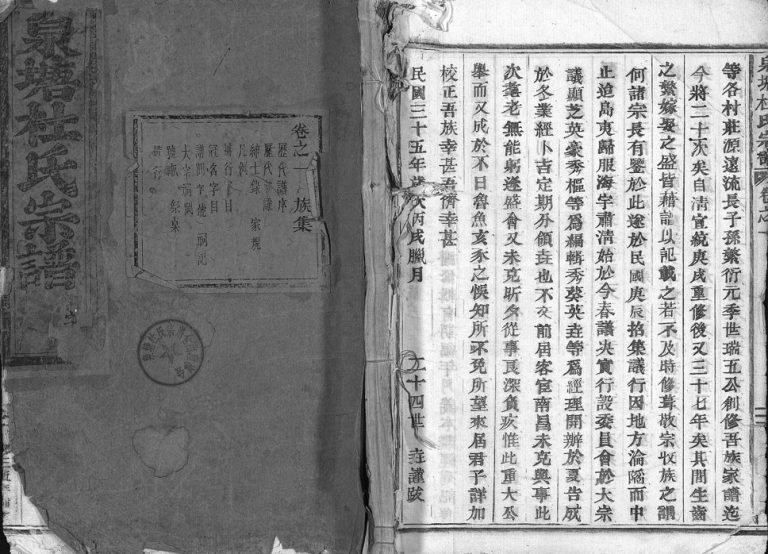 泉塘杜氏宗譜
卷之一 族集
歷代譜序
歷代誥讓
紳士錄 家規
凡例
排行字目
冠名字目
泉塘杜氏宗譜 卷之一
等各村莊源遠流長子孫繁衍元季世瑞五公創修吾族家譜迄
今將二十次矣自清宣統庚戌重修後又三十七年矣其間生齒
之繁嫁娶之盛皆藉譜以記載之若不及時修葺敬宗收族之謂
何諸宗長有鑒於此遂於民國庚辰招集議行因地方淪陷而中
止迨島夷歸服海宇肅清始於今春議決實行設委員會於大宗
議顯芝英豪秀樞等爲編輯秀葵英垚等爲經理開辦於夏告成
於冬業經卜吉定期分領垚也不文前居客官南昌未克與事此
次耄老無能躬逢盛會又未克昕夕從事良深負疚惟此重大公
舉而又成於不日魯魚亥豕之悞知所不免所望來居君子詳加
校正吾族幸甚吾儕幸甚
民國三十五年歲次丙戌臘月 二十四世 垚謹跋